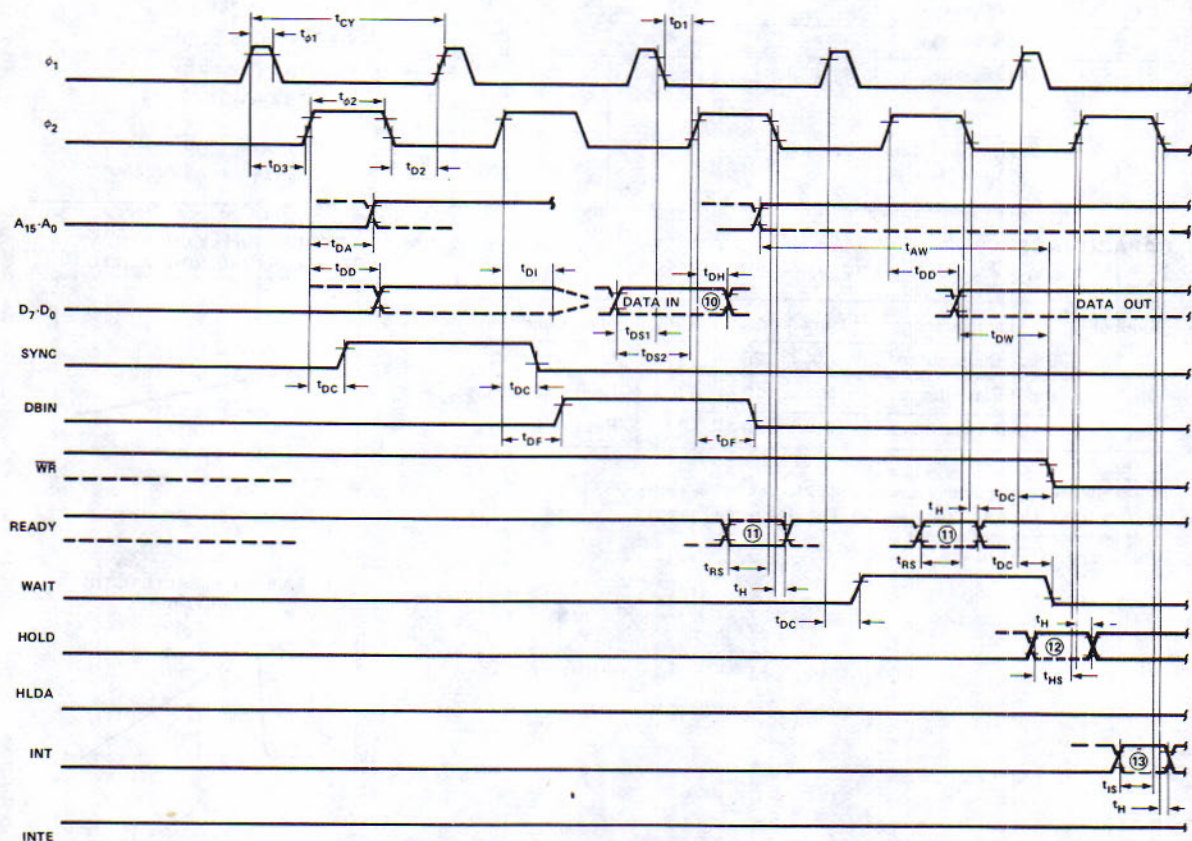 tCY
tφ1
tD1
φ1
tφ2
φ2
tD3
tD2
A15-A0
tDA
tAW
tDD
tDI
tDH
tDD
D7-D0
DATA IN
⑩
DATA OUT
tDS1
tDS2
tDW
SYNC
tDC
tDC
DBIN
tDF
tDF
WR
tDC
tH
READY
⑪
⑪
tRS
tRS
tDC
tH
WAIT
tDC
tH
HOLD
⑫
tHS
HLDA
INT
⑬
tIS
tH
INTE